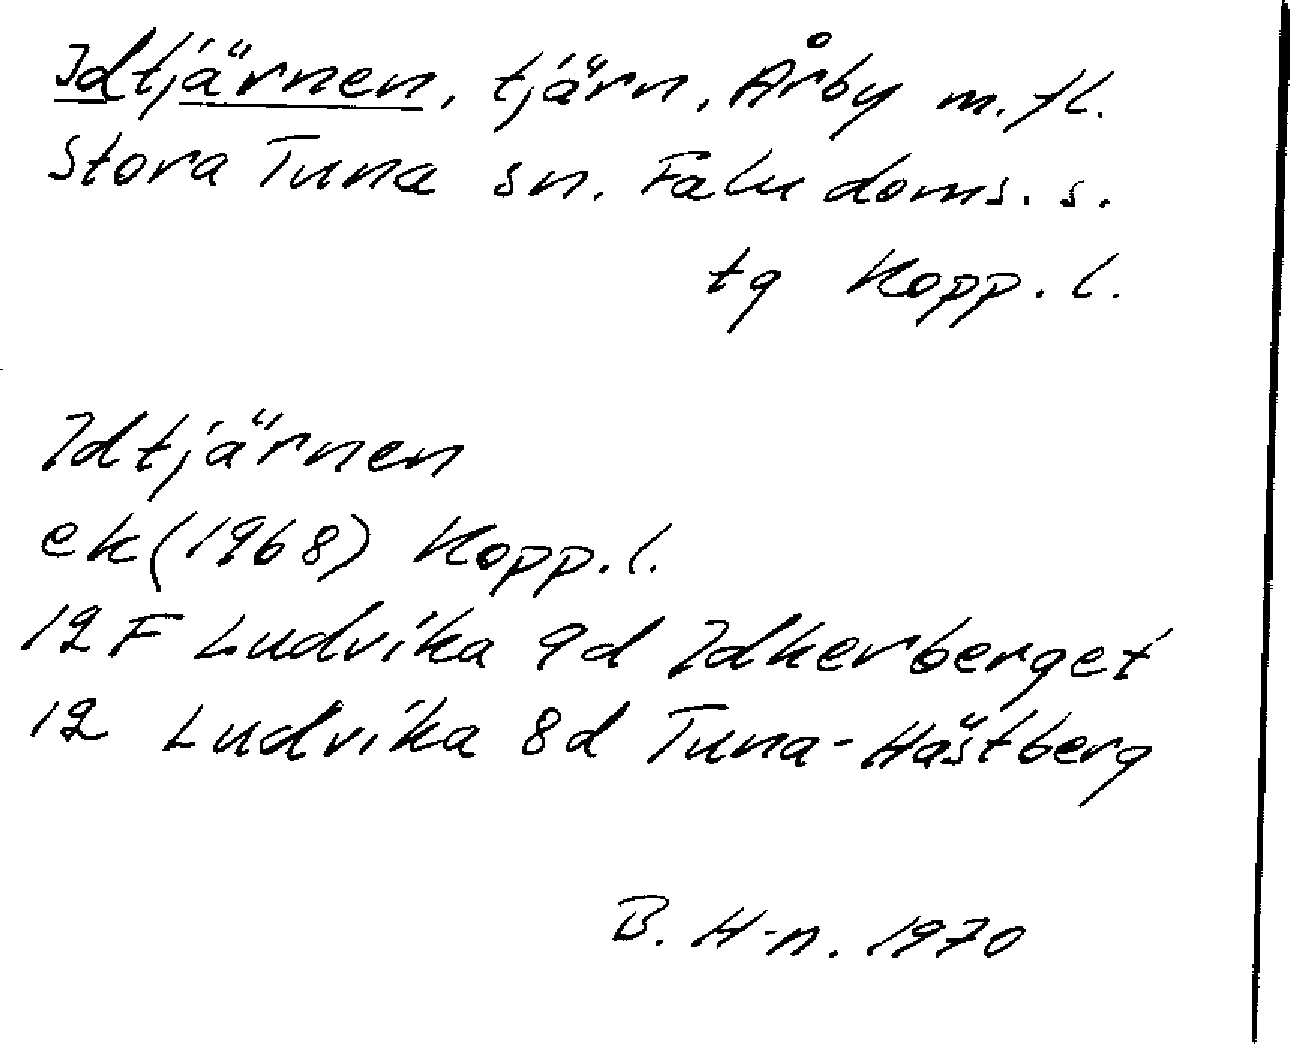 Idtjärnen, tjärn, Årby m.fl.
Stora Tuna sn. Falu doms. s.
tg Kopp. l.
Idtjärnen
ek (1968) Kopp. l.
12 F Ludvika 9d Idkerberget
12 Ludvika 8d Tuna-Hästberg
B. H-n. 1970